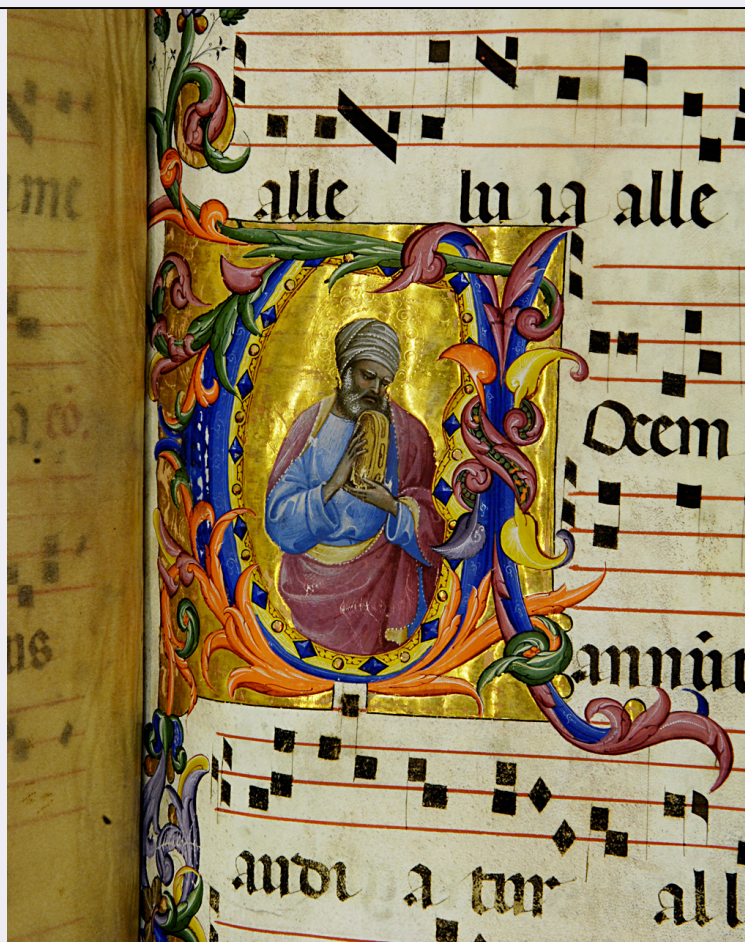 alle lu ia alle
VOcem
annū
audi a tur all